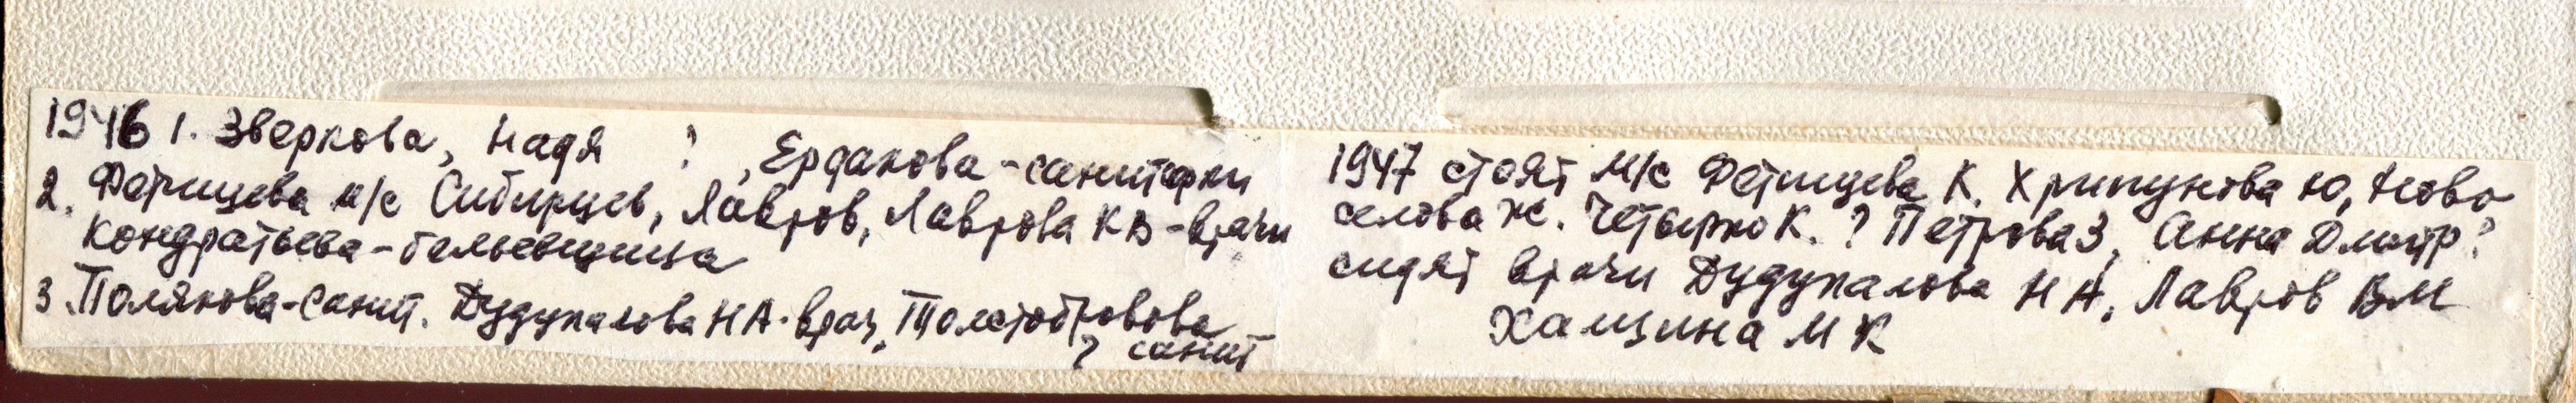 1946 1. Зверкова, Надя ? , Ердакова - санитарки
2. Фетищева м/с Сибирцев, Лавров, Лаврова КВ - врачи
Кондратьева - бельевщица
3. Полякова - санит. Дудукалова НА. врач, Толстобровова
? санит
1947 стоят м/с Фетищева К. Хрипунова Ю, Ново
селова Ж. Четырко К. ? Петрова З, Анна Дмитр?
сидят врачи Дудукалова НА, Лавров ВМ
Хамзина МК